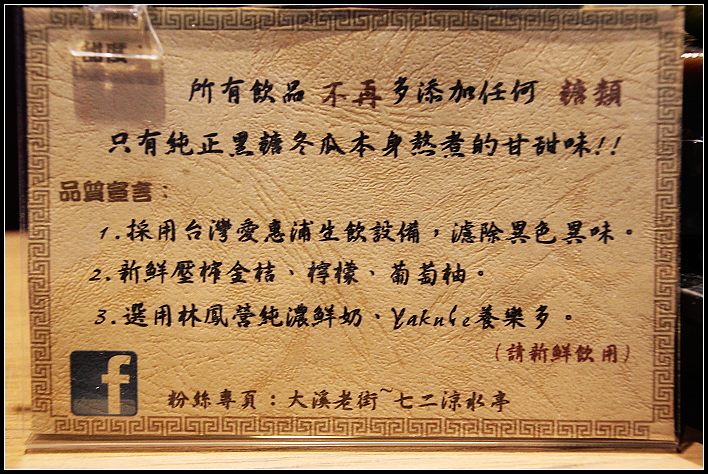 所有飲品 不再多添加任何 糖類
只有純正黑糖冬瓜本身熬煮的甘甜味!!
品質宣言：
1.採用台灣愛惠浦生飲設備，濾除異色異味。
2.新鮮壓榨金桔、檸檬、葡萄柚。
3.選用林鳳營純濃鮮奶、Yakule養樂多。
(請新鮮飲用)
f
粉絲專頁：大溪老街~七二涼水亭